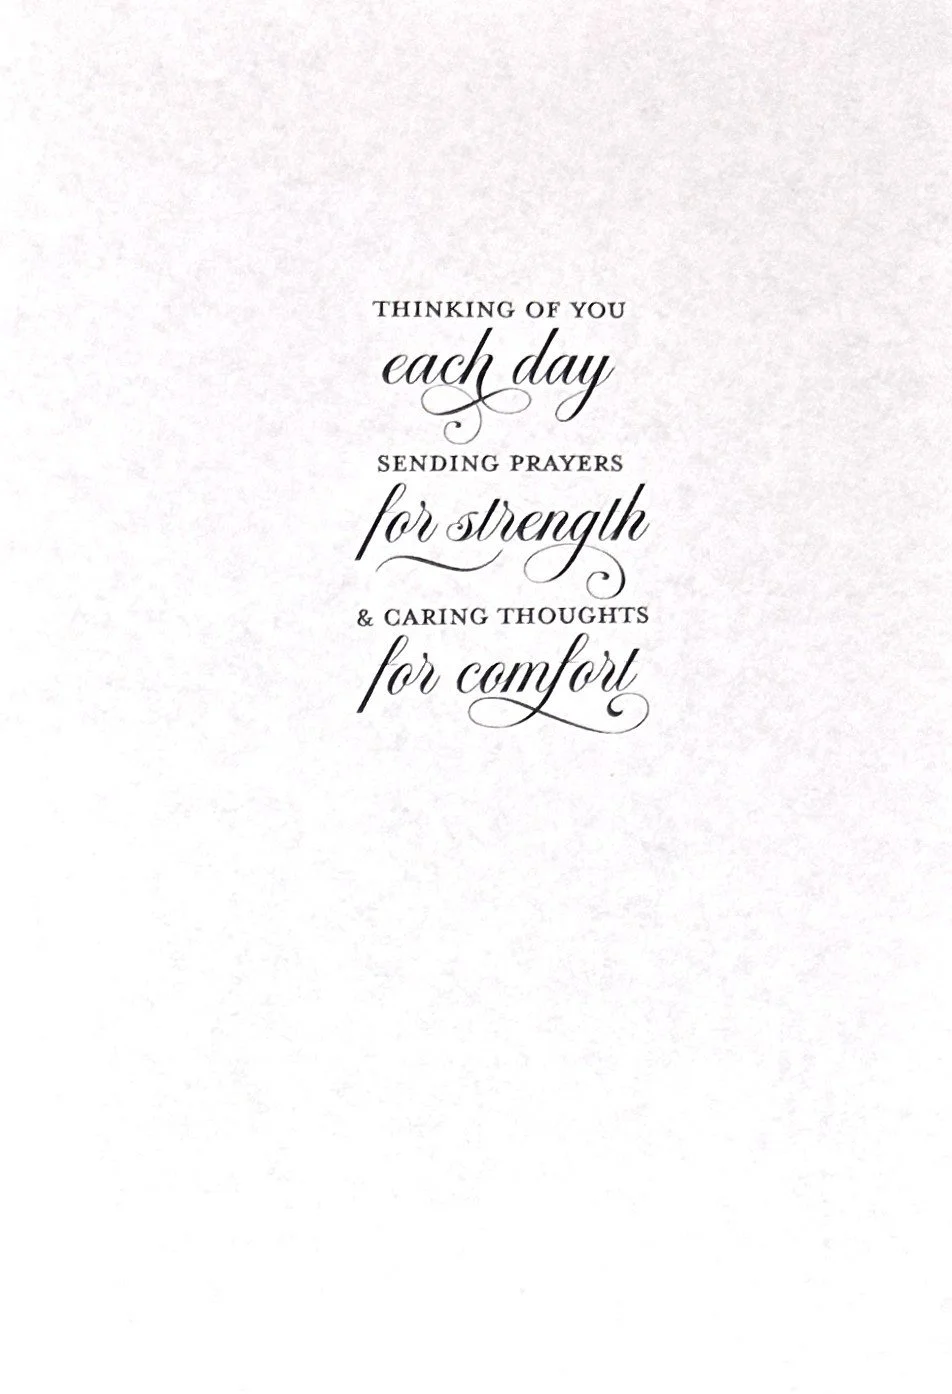 THINKING OF YOU
each day
SENDING PRAYERS
for strength
& CARING THOUGHTS
for comfort